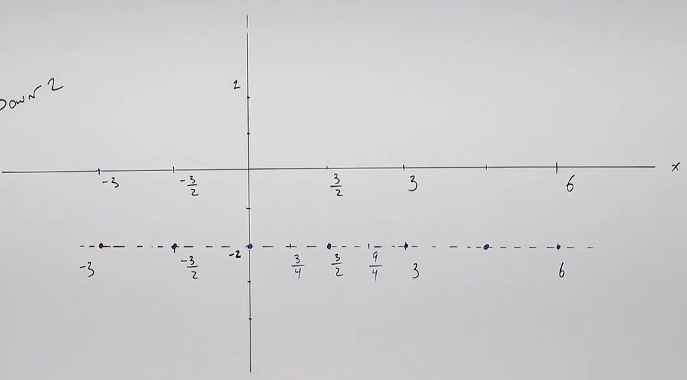 Down 2
2
x
-3 -3/2 3/2 3 6
-2
-3 -3/2 3/4 3/2 9/4 3 6